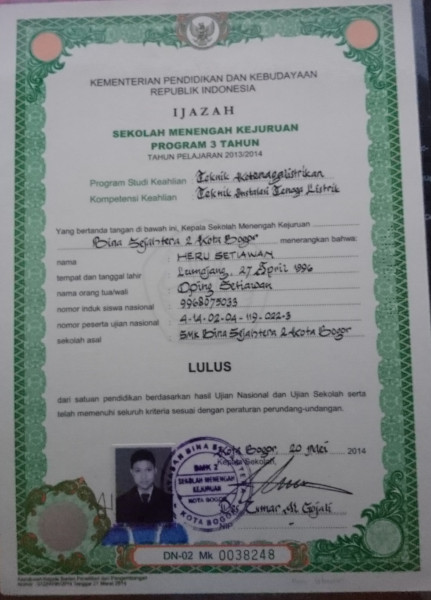 KEMENTERIAN PENDIDIKAN DAN KEBUDAYAAN
REPUBLIK INDONESIA
IJAZAH
SEKOLAH MENENGAH KEJURUAN
PROGRAM 3 TAHUN
TAHUN PELAJARAN 2013/2014
Program Studi Keahlian : Teknik Ketenagalistrikan
Kompetensi Keahlian : Teknik Instalasi Tenaga Listrik
Yang bertanda tangan di bawah ini, Kepala Sekolah Menengah Kejuruan
Bina Sejahtera 2 Kota Bogor menerangkan bahwa:
nama : HERU SETIAWAN
tempat dan tanggal lahir : Lumajang, 27 April 1996
nama orang tua/wali : Oping Setiawan
nomor induk siswa nasional : 9968975033
nomor peserta ujian nasional : 4-14-02-04-119-022-3
sekolah asal : SMK Bina Sejahtera 2 Kota Bogor
LULUS
dari satuan pendidikan berdasarkan hasil Ujian Nasional dan Ujian Sekolah serta
telah memenuhi seluruh kriteria sesuai dengan peraturan perundang-undangan.
Kota Bogor, 20 Mei 2014
Kepala Sekolah,
BMRK 2
SEKOLAH MENENGAH
KEJURUAN
KOTA BOGOR
KOTA BOGOR
DN-02 Mk 0038248